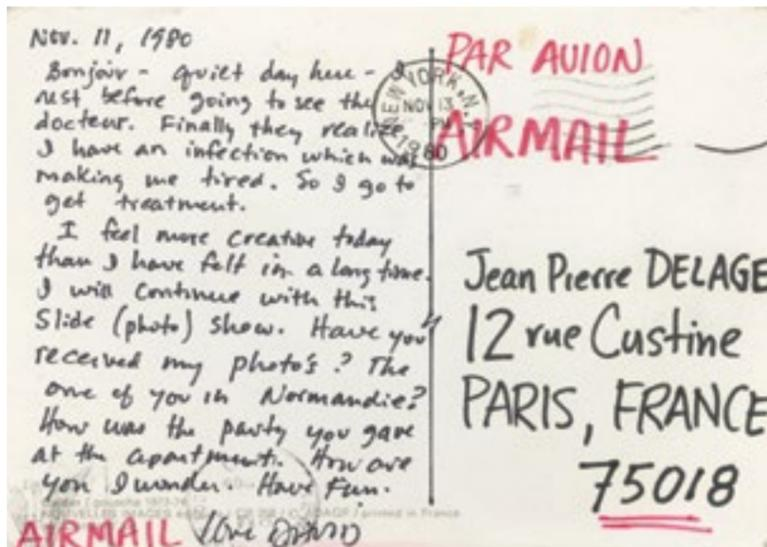 Nov. 11, 1980
Bonjour - quiet day here - I
rest before going to see the
docteur. Finally they realize
I have an infection which was
making me tired. So I go to
get treatment.
I feel more creative today
than I have felt in a long time.
I will continue with this
Slide (photo) show. Have you
received my photo's? The
one of you in Normandie?
How was the party you gave
at the apartment. How are
you I wonder. Have Fun.
AIRMAIL Love
PAR AVION
AIRMAIL
NEW YORK, N.Y.
NOV 13
PM
1980
Jean Pierre DELAGE
12 rue Custine
PARIS, FRANCE
75018
NOUVELLES IMAGES
printed in France